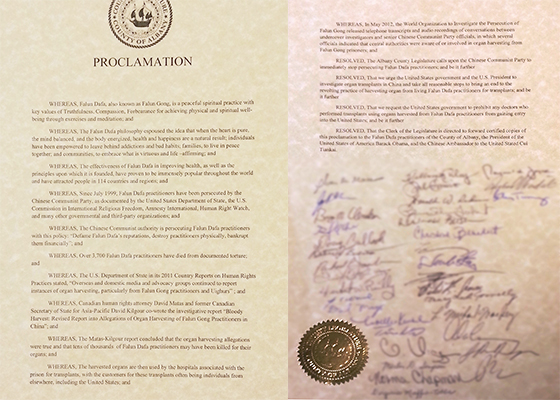 COUNTY OF ALBANY
PROCLAMATION
WHEREAS, Falun Dafa, also known as Falun Gong, is a peaceful spiritual practice with
key values of Truthfulness, Compassion, Forbearance for achieving physical and spiritual well-
being through exercises and meditation; and
WHEREAS, The Falun Dafa philosophy espoused the idea that when the heart is pure,
the mind balanced, and the body energized, health and happiness are a natural result; individuals
have been empowered to leave behind addictions and bad habits; families, to live in peace
together; and communities, to embrace what is virtuous and life-affirming; and
WHEREAS, The effectiveness of Falun Dafa in improving health, as well as the
principles upon which it is founded, have proven to be immensely popular throughout the world
and have attracted people in 114 countries and regions; and
WHEREAS, Since July 1999, Falun Dafa practitioners have been persecuted by the
Chinese Communist Party, as documented by the United States Department of State, the U.S.
Commission in International Religious Freedom, Amnesty International, Human Right Watch,
and many other governmental and third-party organizations; and
WHEREAS, The Chinese Communist authority is persecuting Falun Dafa practitioners
with this policy: "Defame Falun Dafa's reputations, destroy practitioners physically, bankrupt
them financially"; and
WHEREAS, Over 3,700 Falun Dafa practitioners have died from documented torture;
and
WHEREAS, The U.S. Department of State in its 2011 Country Reports on Human Rights
Practices stated, "Overseas and domestic media and advocacy groups continued to report
instances of organ harvesting, particularly from Falun Gong practitioners and Uighurs"; and
WHEREAS, Canadian human rights attorney David Matas and former Canadian
Secretary of State for Asia-Pacific David Kilgour co-wrote the investigation report "Bloody
Harvest: Revised Report into Allegations of Organ Harvesting of Falun Gong Practitioners in
China", and
WHEREAS, The Matas-Kilgour report concluded that the organ harvesting allegations
were true and that tens of thousands of Falun Dafa practitioners may have been killed for their
organs; and
WHEREAS, The harvested organs are then used by the hospitals associated with the
prison for transplants, with the customers for these transplants often being individuals from
elsewhere, including the United States; and
WHEREAS, In May 2012, the World Organization to Investigate the Persecution of
Falun Gong released telephone transcripts and audio recordings of conversations between
undercover investigators and senior Chinese Communist Party officials, in which several
officials indicated that central authorities were aware of or involved in organ harvesting from
Falun Gong prisoners; and
RESOLVED, The Albany County Legislature calls upon the Chinese Communist Party to
immediately stop persecuting Falun Dafa practitioners; and be it further
RESOLVED, That we urge the United States government and the U.S. President to
investigate organ transplants in China and take all reasonable steps to bring an end to the
revolting practice of harvesting organ from living Falun Dafa practitioners for transplants; and be
it further
RESOLVED, That we request the United States government to prohibit any doctors who
performed transplants using organs harvested from Falun Dafa practitioners from gaining entry
into the United States, and be it further
RESOLVED, That the Clerk of the Legislature is directed to forward certified copies of
this proclamation to the Falun Dafa practitioners of the County of Albany, the President of the
United States of America Barack Obama, and the Chinese Ambassador to the United States Cui
Tiankai.